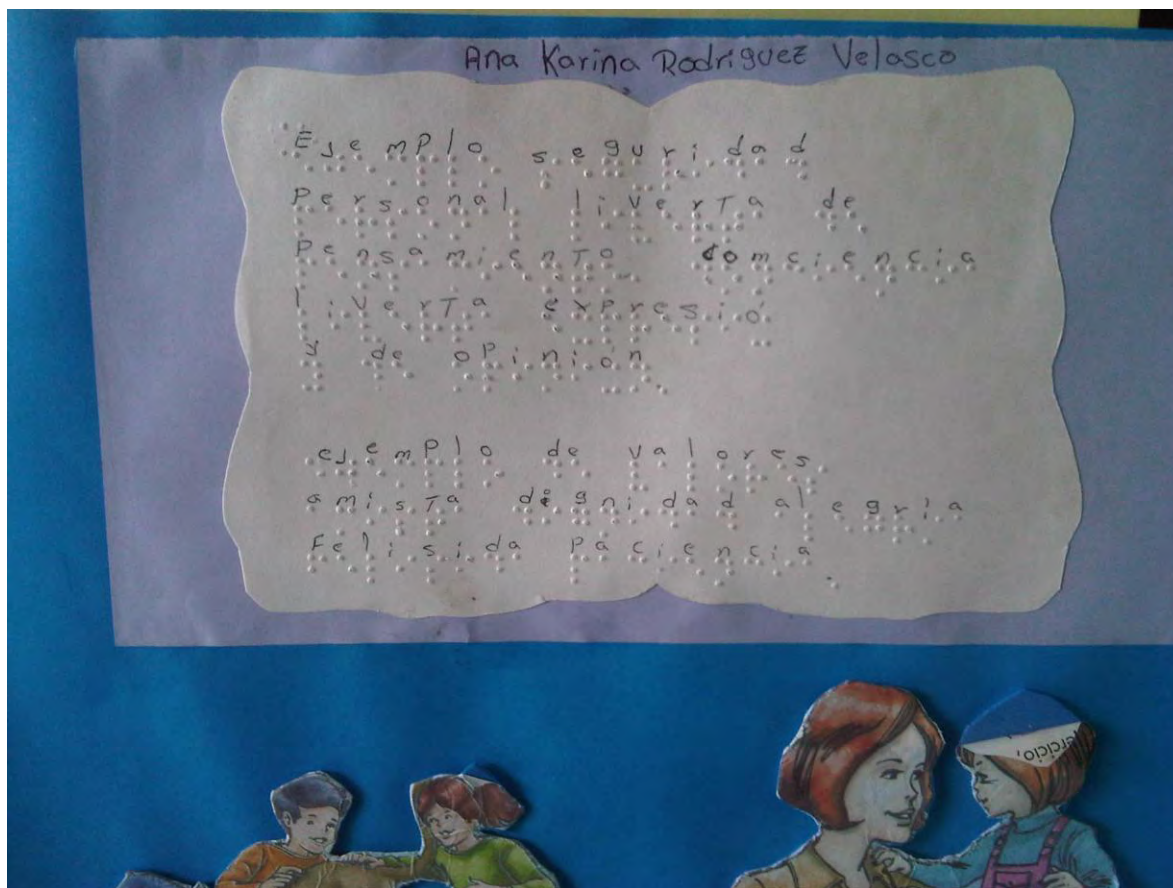 Ana Karina Rodriguez Velasco
Ejemplo seguridad
Personal liverta de
Pensamiento comciencia
liverta expresió
ú de opinión
ejemplo de valores
amista dignidad alegria
Felisida paciencia
ercicio,